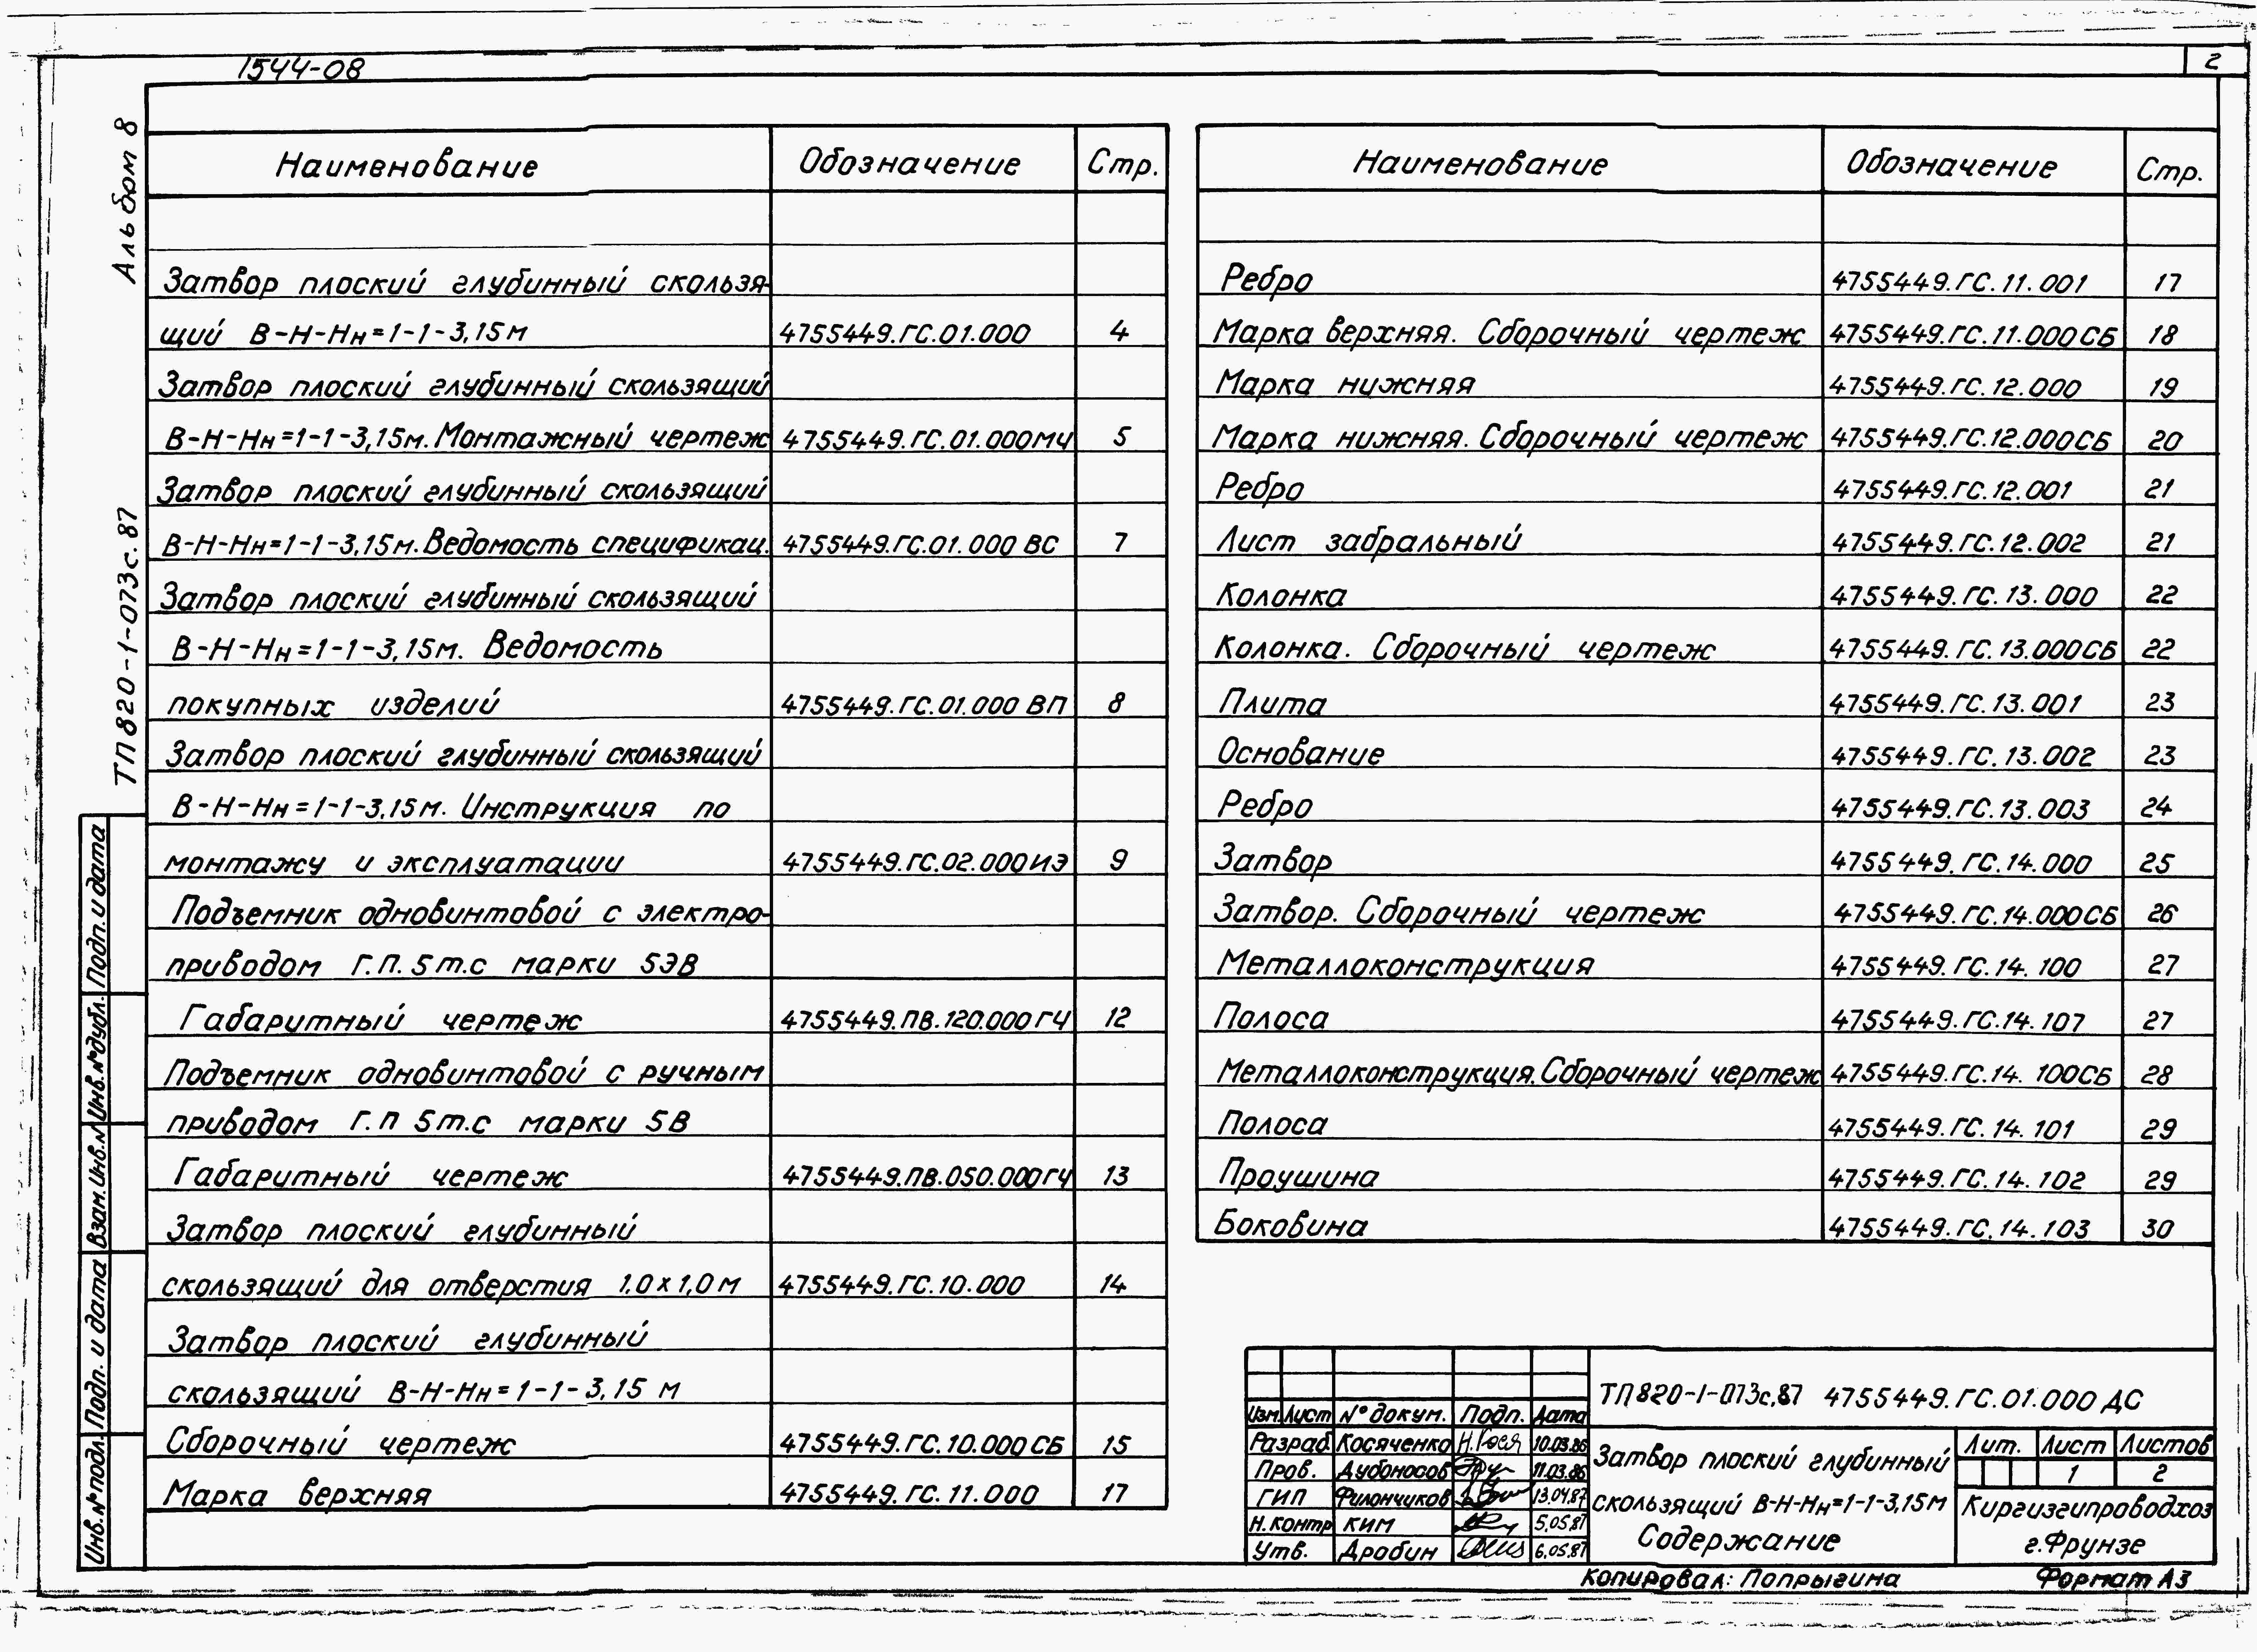 1544-08
2
Альбом 8
ТП 820-1-073с.87
Наименование Обозначение Стр.
Затвор плоский глубинный скользя-
щий В-Н-Нн=1-1-3,15м 4755449.ГС.01.000 4
Затвор плоский глубинный скользящий
В-Н-Нн=1-1-3,15м. Монтажный чертеж 4755449.ГС.01.000МЧ 5
Затвор плоский глубинный скользящий
В-Н-Нн=1-1-3,15м. Ведомость спецификац. 4755449.ГС.01.000 ВС 7
Затвор плоский глубинный скользящий
В-Н-Нн=1-1-3,15м. Ведомость
покупных изделий 4755449.ГС.01.000 ВП 8
Затвор плоский глубинный скользящий
В-Н-Нн=1-1-3,15м. Инструкция по
монтажу и эксплуатации 4755449.ГС.02.000ИЭ 9
Подъемник одновинтовой с электро-
приводом Г.П. 5т.с марки 5ЭВ
Габаритный чертеж 4755449.ПВ.120.000ГЧ 12
Подъемник одновинтовой с ручным
приводом Г.П 5т.с марки 5В
Габаритный чертеж 4755449.ПВ.050.000ГЧ 13
Затвор плоский глубинный
скользящий для отверстия 1,0х1,0м 4755449.ГС.10.000 14
Затвор плоский глубинный
скользящий В-Н-Нн=1-1-3,15 м
Сборочный чертеж 4755449.ГС.10.000СБ 15
Марка верхняя 4755449.ГС.11.000 17
Наименование Обозначение Стр.
Ребро 4755449.ГС.11.001 17
Марка верхняя. Сборочный чертеж 4755449.ГС.11.000СБ 18
Марка нижняя 4755449.ГС.12.000 19
Марка нижняя. Сборочный чертеж 4755449.ГС.12.000СБ 20
Ребро 4755449.ГС.12.001 21
Лист забральный 4755449.ГС.12.002 21
Колонка 4755449.ГС.13.000 22
Колонка. Сборочный чертеж 4755449.ГС.13.000СБ 22
Плита 4755449.ГС.13.001 23
Основание 4755449.ГС.13.002 23
Ребро 4755449.ГС.13.003 24
Затвор 4755449.ГС.14.000 25
Затвор. Сборочный чертеж 4755449.ГС.14.000СБ 26
Металлоконструкция 4755449.ГС.14.100 27
Полоса 4755449.ГС.14.107 27
Металлоконструкция. Сборочный чертеж 4755449.ГС.14.100СБ 28
Полоса 4755449.ГС.14.101 29
Проушина 4755449.ГС.14.102 29
Боковина 4755449.ГС.14.103 30
Подп. и дата
Инв.№дубл.
Взам.Инв.№
Подп. и дата
Инв.№подл.
ТП820-1-073с.87 4755449.ГС.01.000 ДС
Изм. Лист № докум. Подп. Дата
Разраб. Косяченко 10.03.86
Пров. Дубоносов 11.03.86
ГИП Филончиков 13.04.87
Н.контр Ким 5.05.87
Утв. Драбин 6.05.87
Затвор плоский глубинный
скользящий В-Н-Нн=1-1-3,15м
Содержание
Лит. Лист Листов
1 2
Киргизгипроводхоз
г.Фрунзе
Копировал: Попрыгина Формат А3